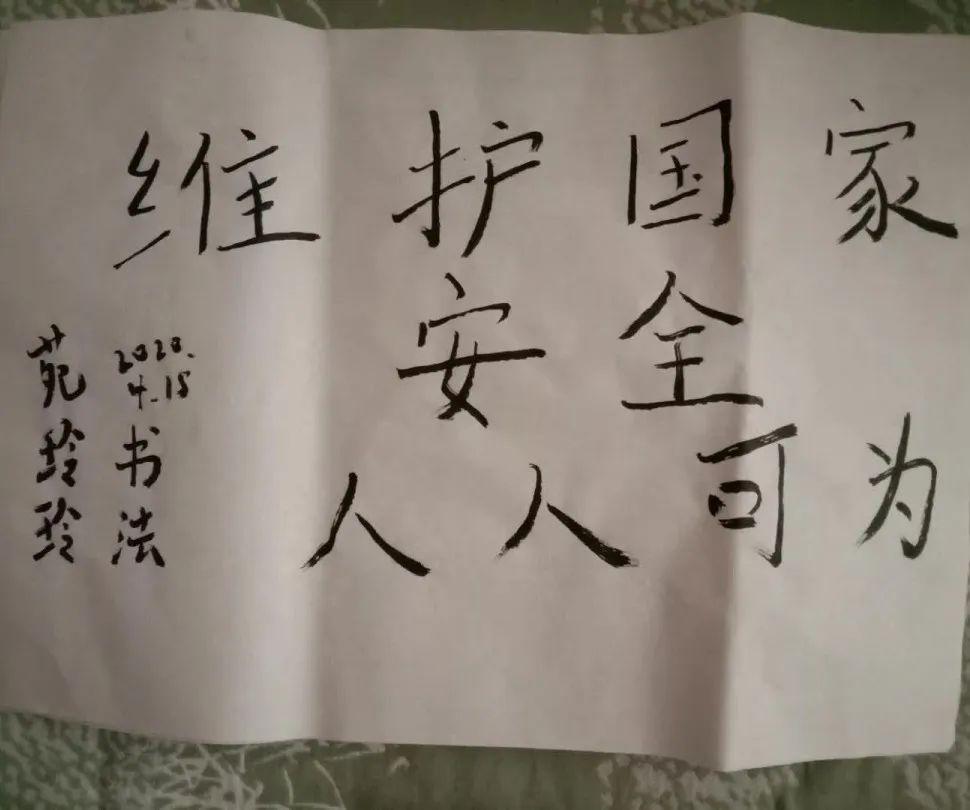 维护国家
安全
人人可为
2020.
4.15
书法
苑玲玲